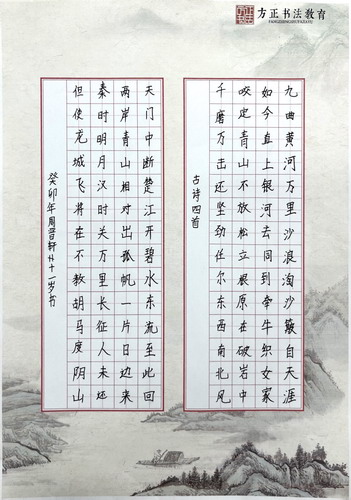 方正书法教育
九曲黄河万里沙浪淘沙簸自天涯
如今直上银河去同到牵牛织女家
咬定青山不放松立根原在破岩中
千磨万击还坚劲任尔东西南北风
古诗四首
天门中断楚江开碧水东流至此回
两岸青山相对出孤帆一片日边来
秦时明月汉时关万里长征人未还
但使龙城飞将在不教胡马度阴山
癸卯年周晋轩十一岁书